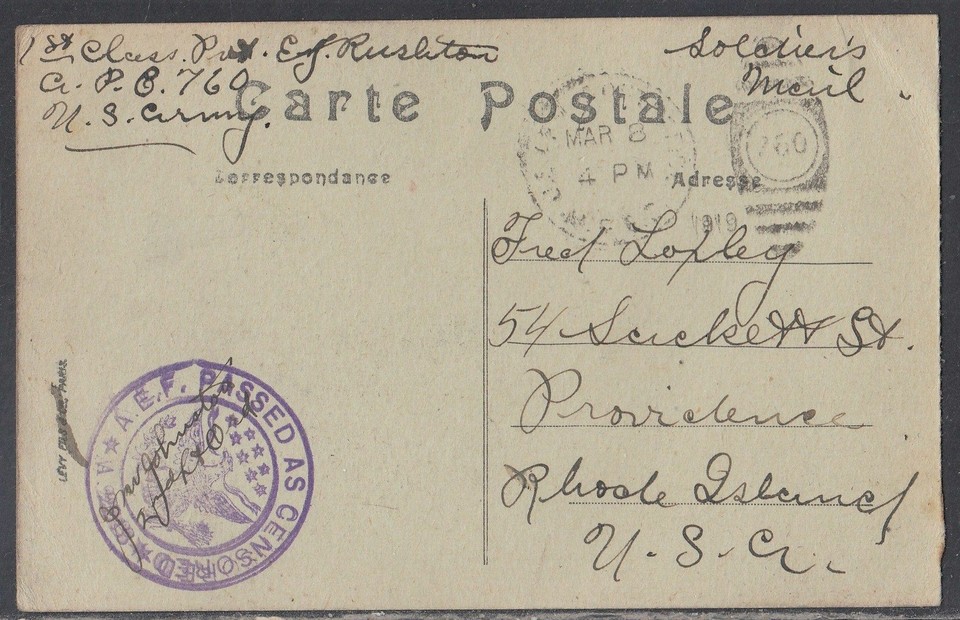 1st Class. Pvt. E. J. Rushton
A. P. O. 760
U. S. Army.
Soldier's
Mail
Carte Postale
MAR 8
4 PM
1919
760
Correspondance
Adresse
Fred Lopley
54 Sackett St.
Providence
Rhode Island
U. S. A.
A.E.F. PASSED AS CENSORED
PARIS